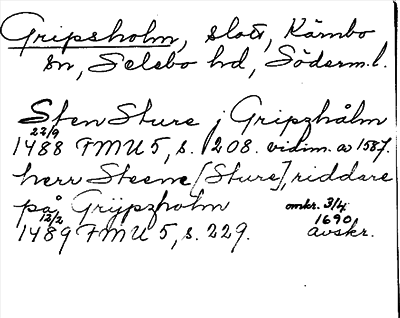 Gripsholm, slott, Kärnbo
sn, Selebo hd, Söderm.l.
Sten Sture j Gripzhålm
22/9
1488 FMU 5, s. 208. vidim. av 1587.
herr Steene [Sture], riddare
på Grijpzholm omkr. 3/4
12/2 1690
1489 FMU 5, s. 229. avskr.